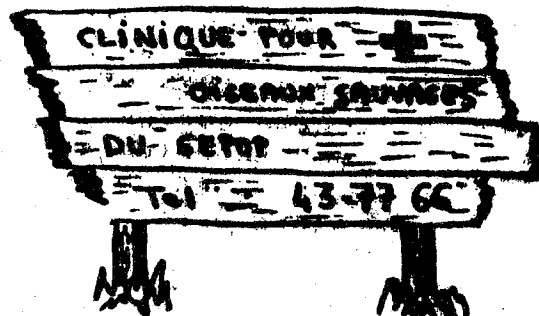 CLINIQUE POUR
OISEAUX SAUVAGES
DU GEPOP
Tel 43-77 66